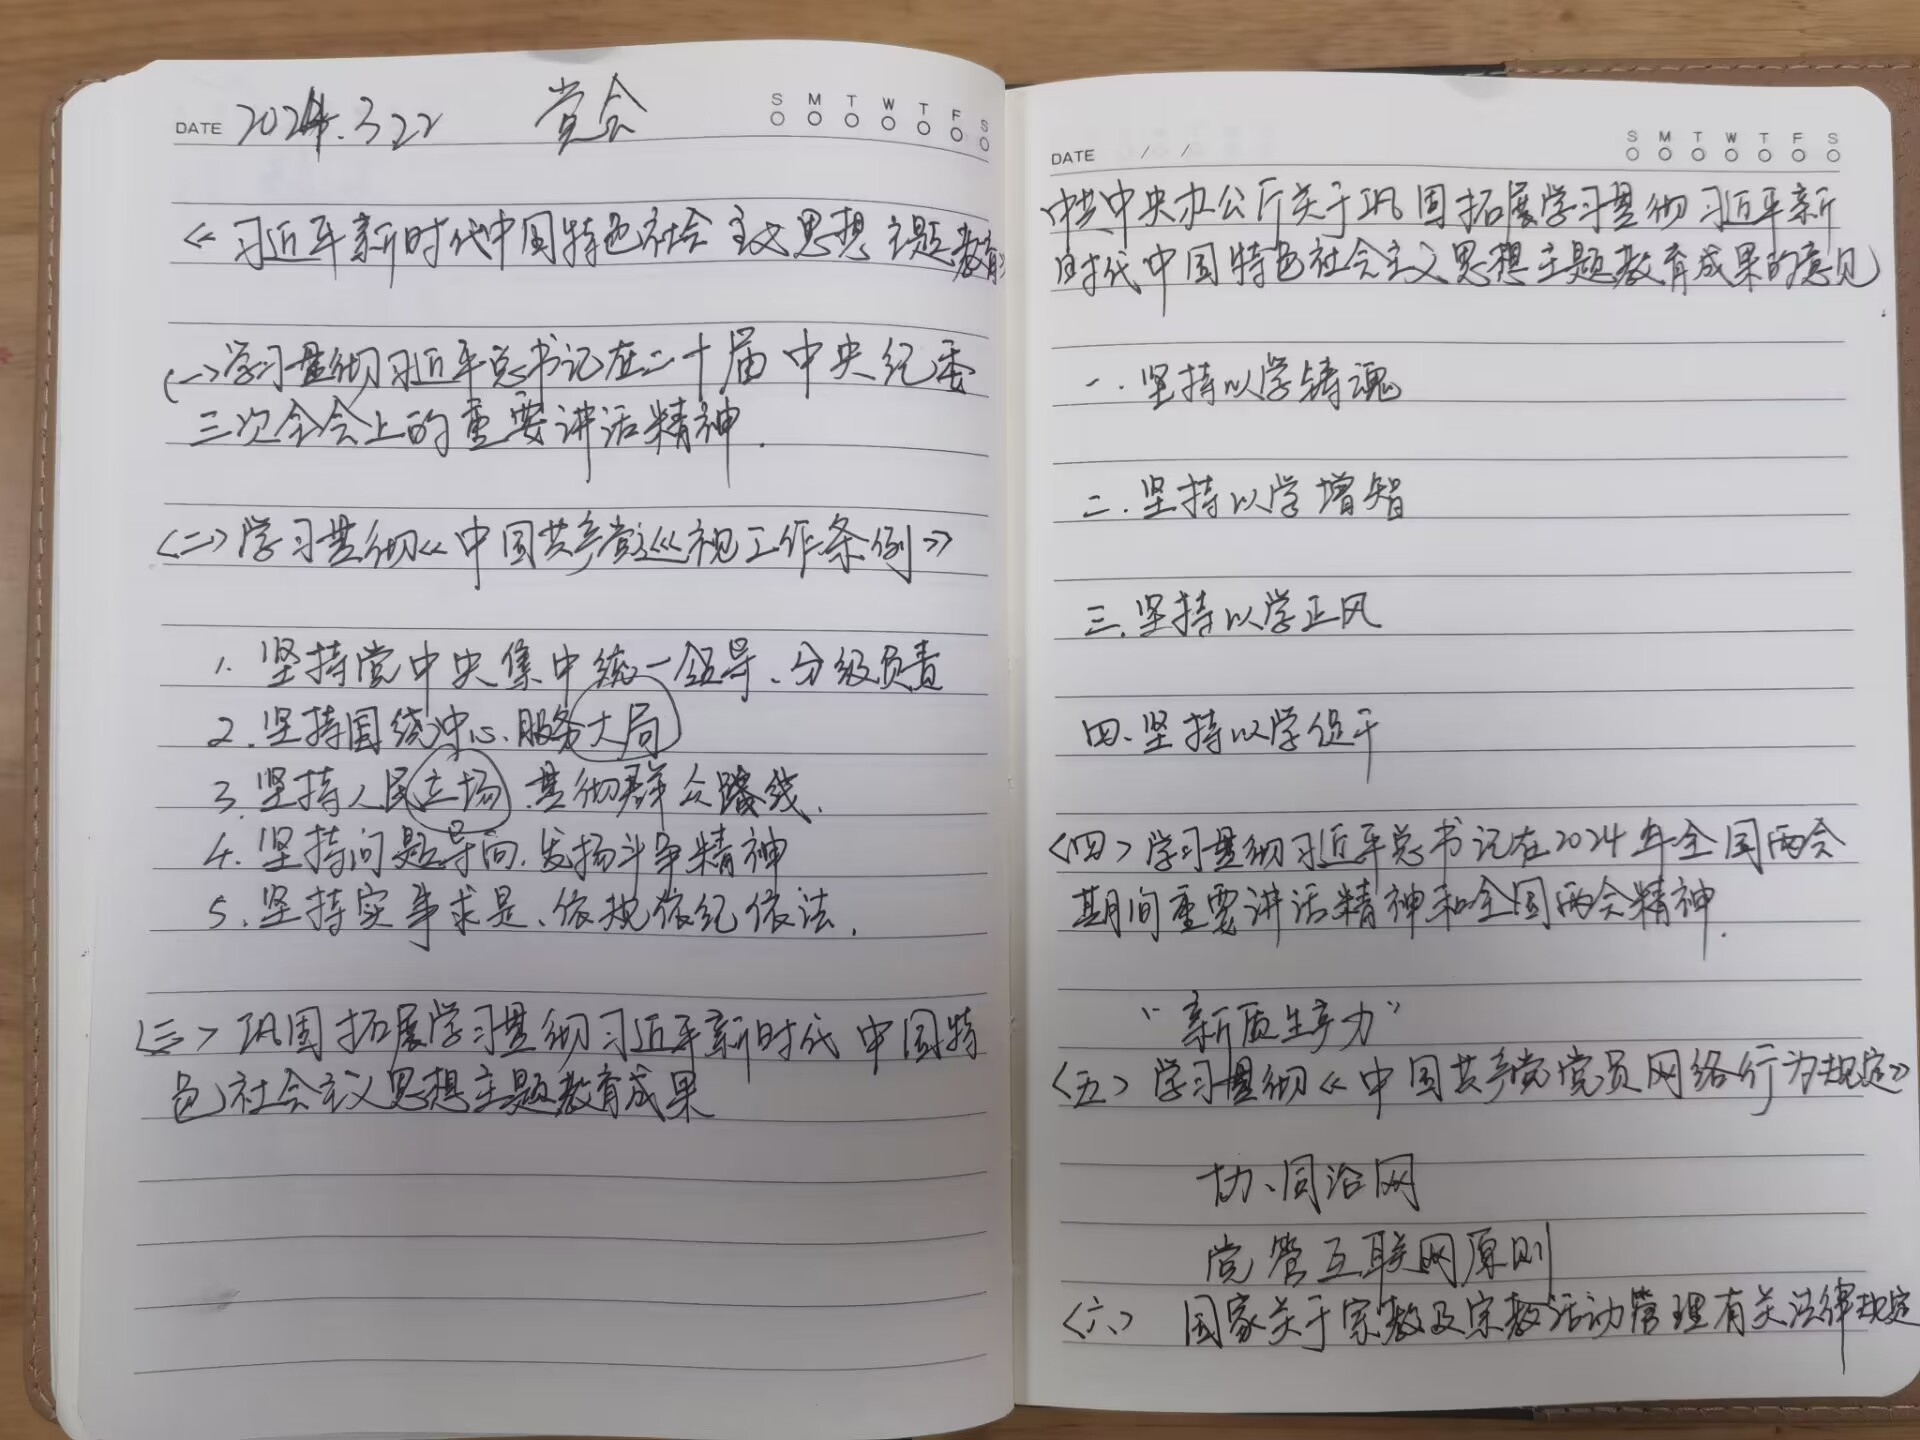 DATE 2024.3.22 党会 S M T W T F S
《习近平新时代中国特色社会主义思想主题教育》
(一)学习贯彻习近平总书记在二十届中央纪委
三次全会上的重要讲话精神.
〈二〉学习贯彻《中国共产党巡视工作条例》
1. 坚持党中央集中统一领导、分级负责
2. 坚持围绕中心、服务大局
3. 坚持人民立场、贯彻群众路线.
4. 坚持问题导向、发扬斗争精神
5. 坚持实事求是、依规依纪依法.
〈三〉巩固拓展学习贯彻习近平新时代中国特
色社会主义思想主题教育成果
DATE / / S M T W T F S
中共中央办公厅关于巩固拓展学习贯彻习近平新
时代中国特色社会主义思想主题教育成果的意见
一. 坚持以学铸魂
二. 坚持以学增智
三. 坚持以学正风
四. 坚持以学促干
〈四〉学习贯彻习近平总书记在2024年全国两会
期间重要讲话精神和全国两会精神.
“新质生产力”
〈五〉学习贯彻《中国共产党党员网络行为规定》
协、同治网
党管互联网原则
〈六〉国家关于宗教及宗教活动管理有关法律规定